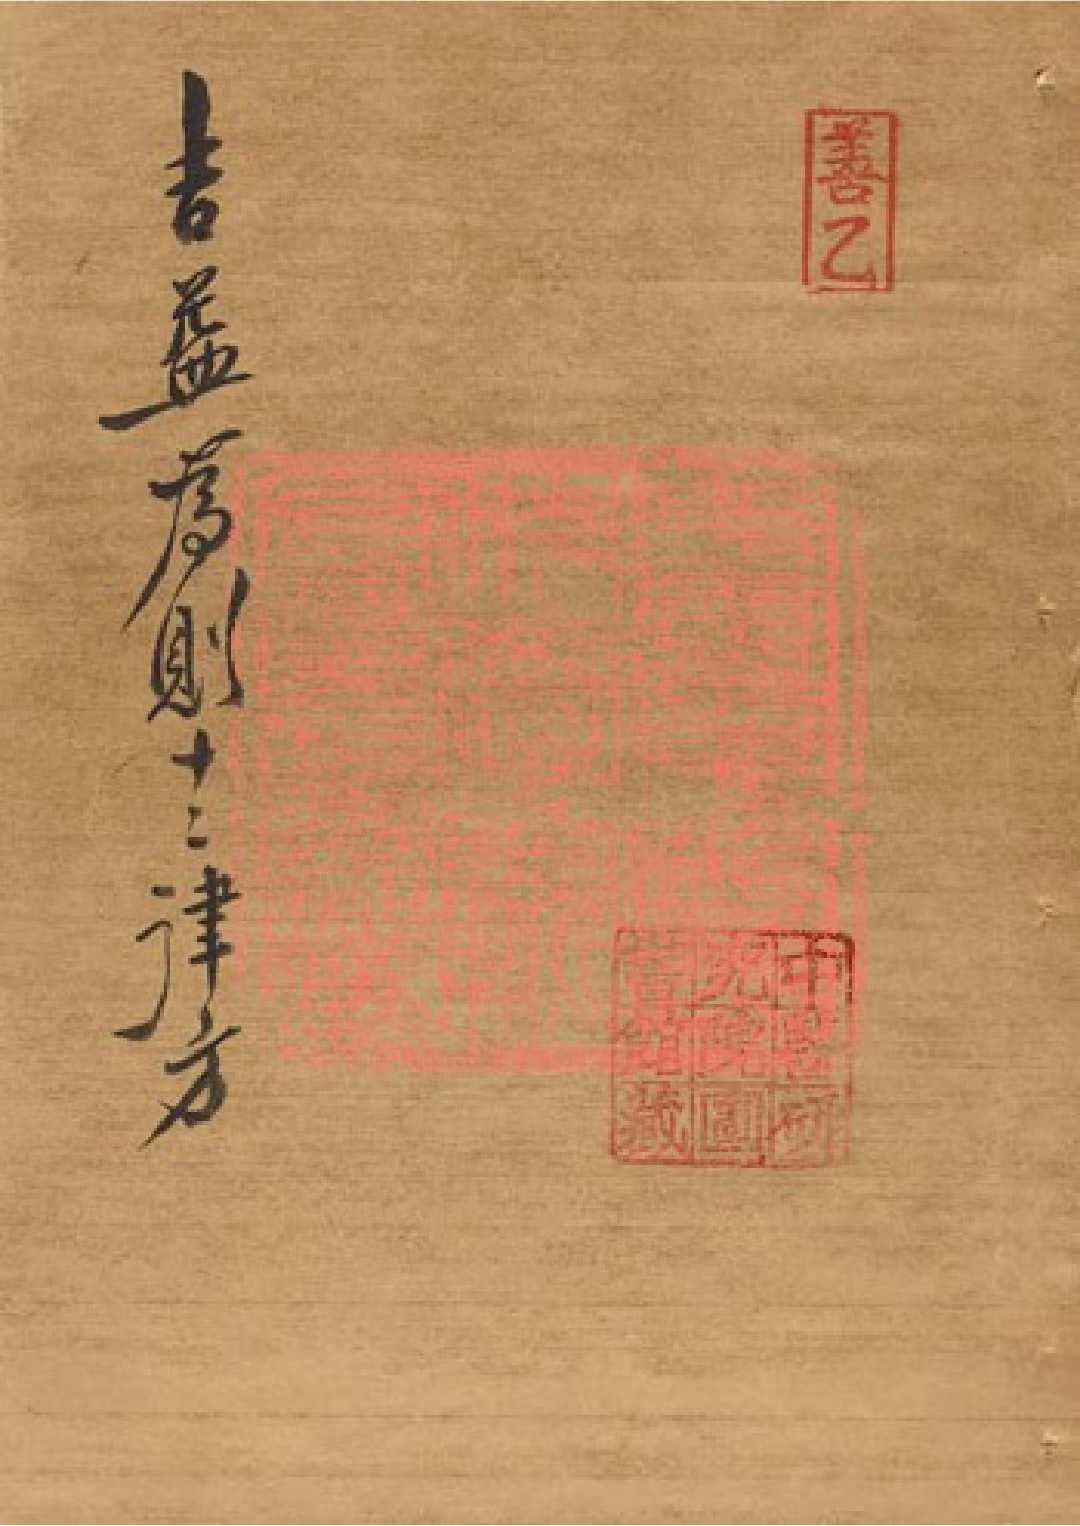 善乙
吉益為則十二律方
中醫研
究院圖
書館藏